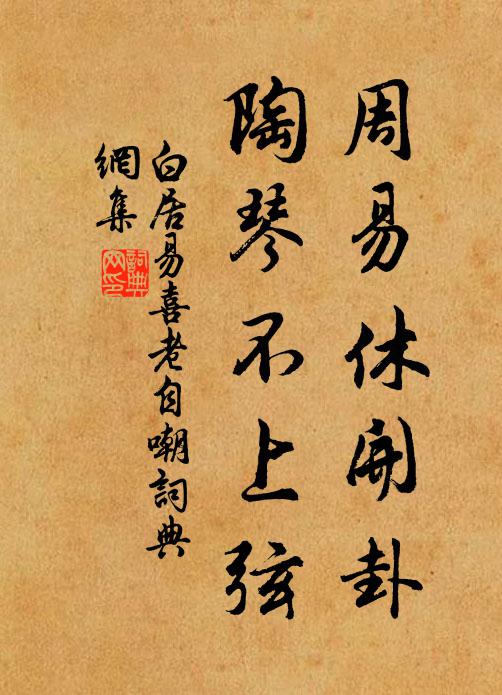 周易休開卦
陶琴不上弦
白居易喜老自嘲詞典
網集
詞典
网印